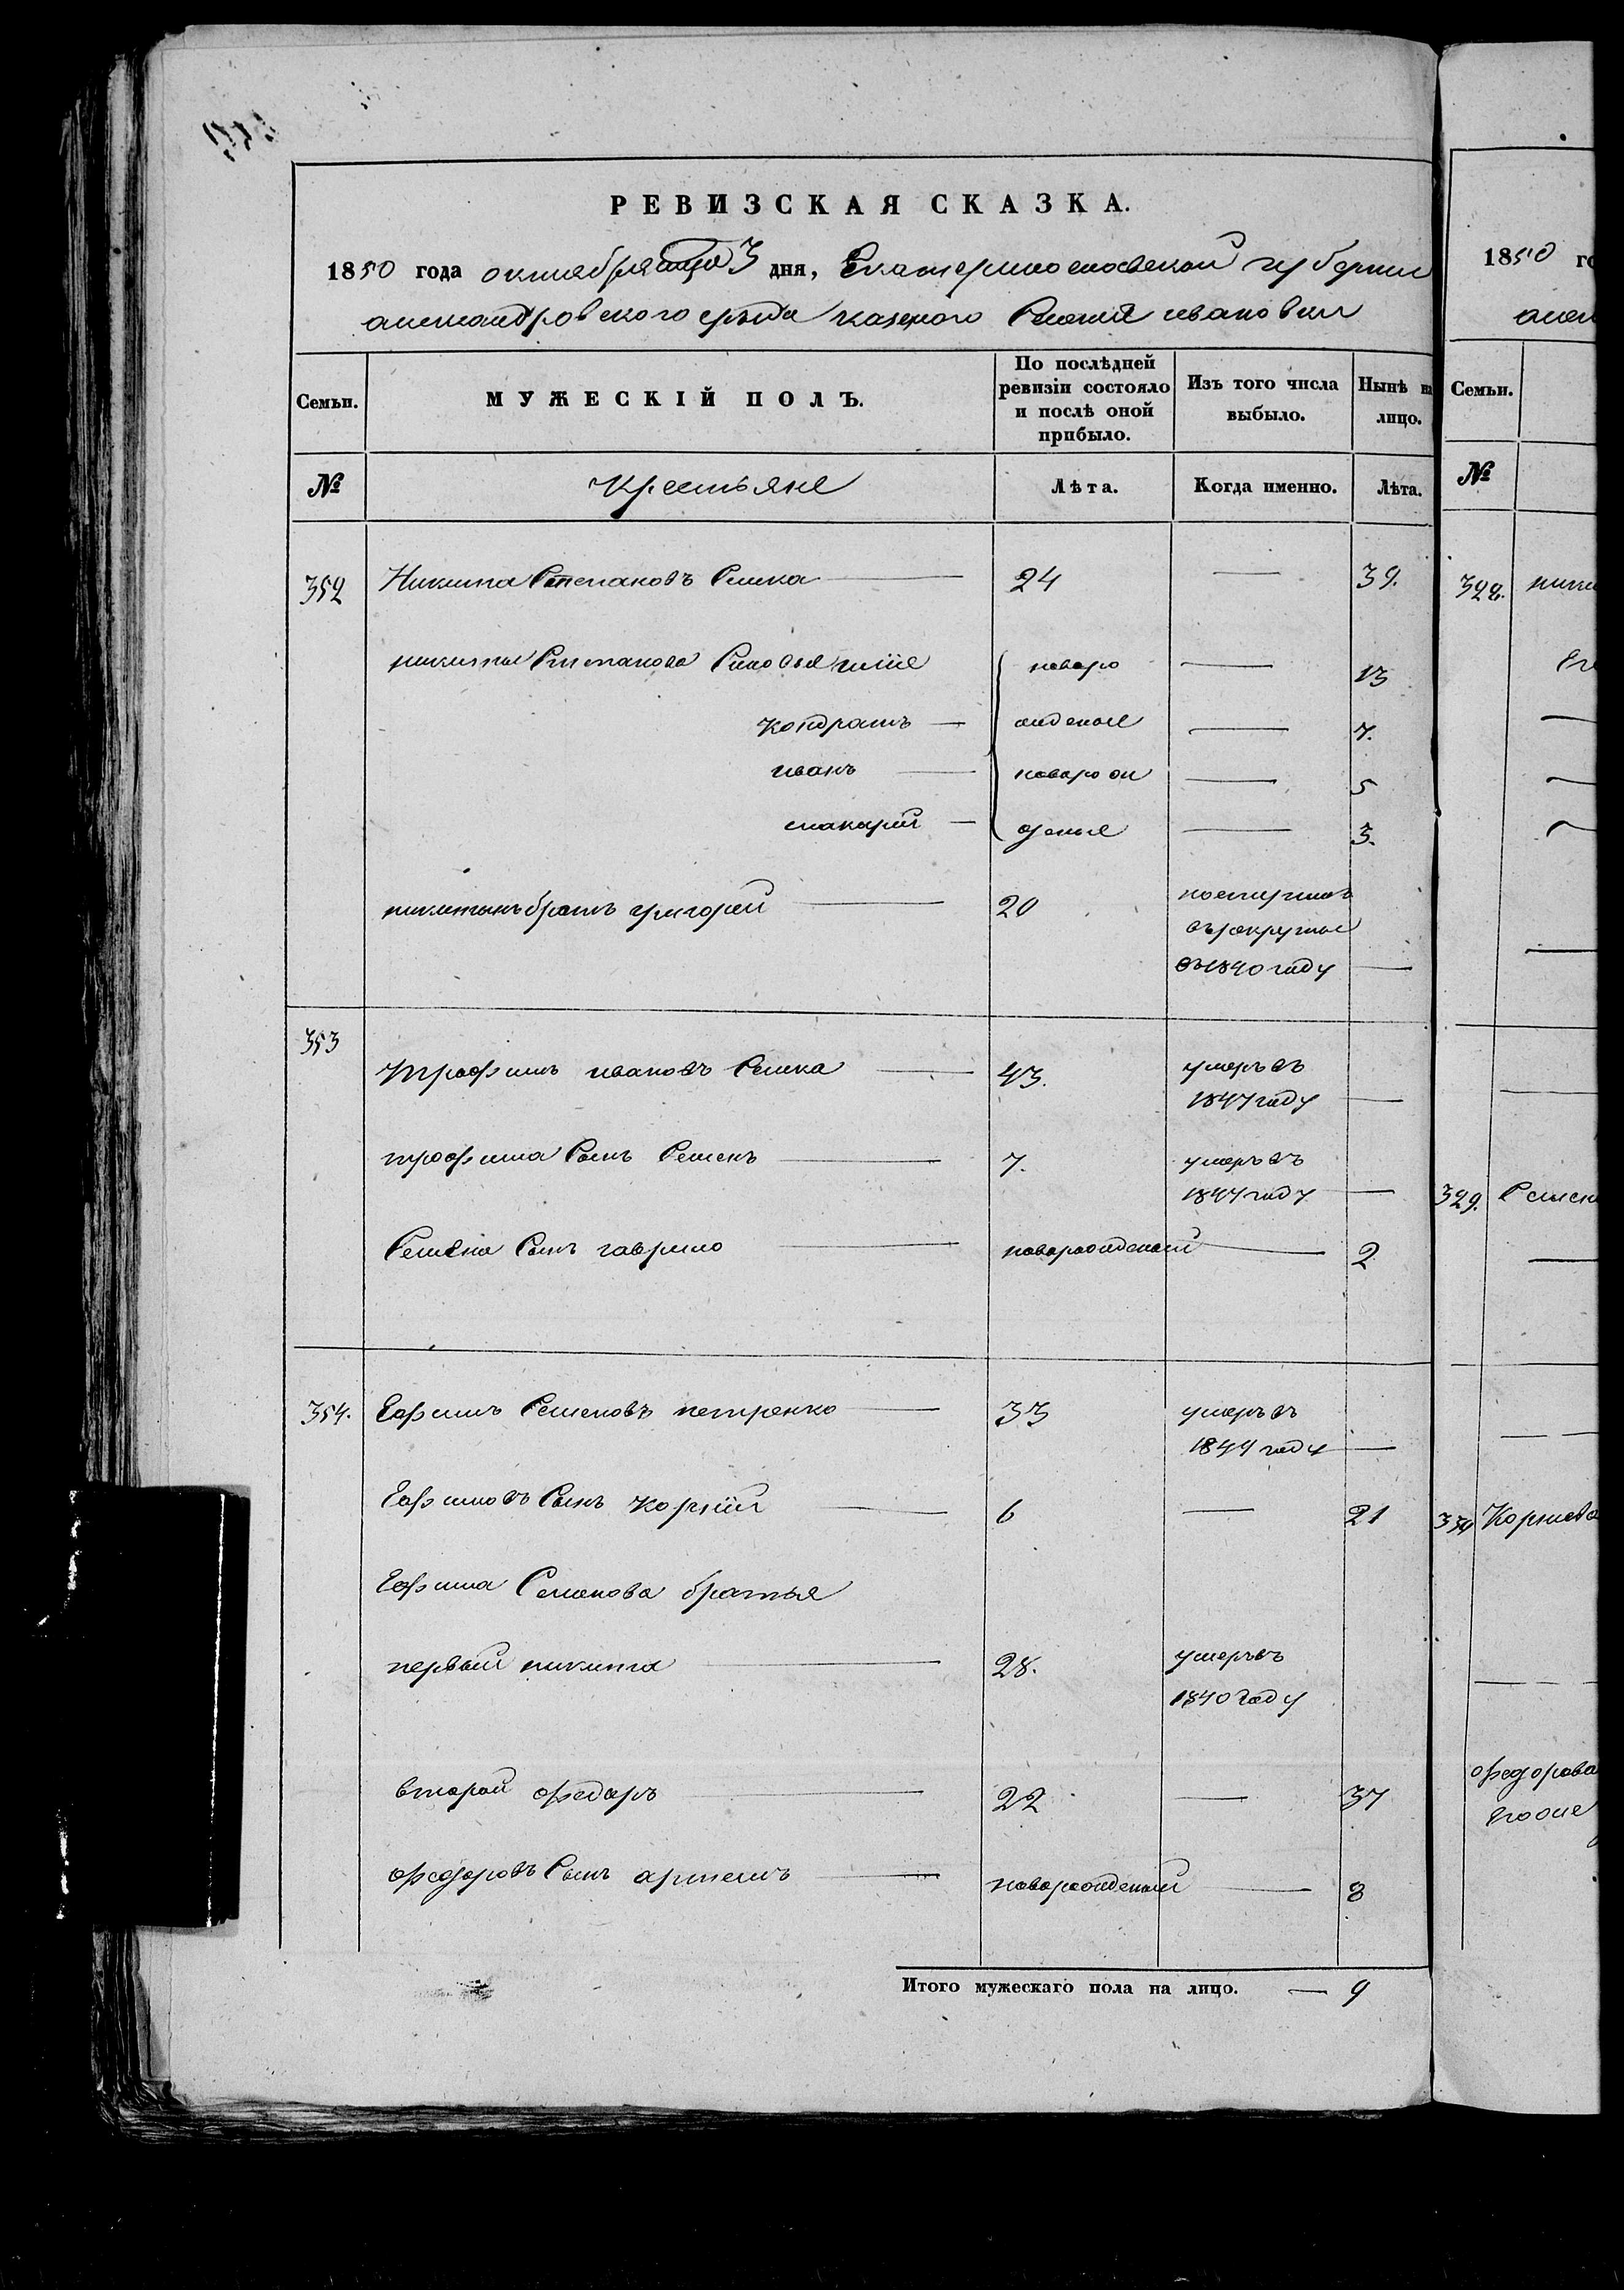 РЕВИЗСКАЯ СКАЗКА.
1850 года октября 3 дня, Екатеринославской губернии
александровского уезда казеного Селения ивановки
Семьи.
МУЖЕСКІЙ ПОЛЪ.
По послѣдней
ревизіи состояло
и послѣ оной
прибыло.
Изъ того числа
выбыло.
Нынѣ на
лицо.
№
Крестьяне
Лѣта.
Когда именно.
Лѣта.
352 Никита Степановъ Семка 24 — 39.
никиты Степанова Сыновья новоро — 13
Кондратъ — жденые — 7.
иванъ — новорож — 5
макарий — деные — 3.
никитинъ братъ григорей 20
въ рекруты
въ 1840 году —
353
Трофимъ ивановъ Семка 43. умеръ въ
1847 году —
трофима Сынъ Семенъ 7. умеръ въ
1847 году —
Семена Сынъ гаврило новорожденый — 2
354. Ефимъ Семеновъ петренко 33 умеръ въ
1844 году —
Ефимовъ Сынъ Корнiй 6 — 21
Ефима Семенова братья
первый никита 28. умеръ въ
1840 году
второй федаръ 22 — 37
федоровъ Сынъ артемъ новорожденый — 8
Итого мужескаго пола на лицо. — 9
1850 го
Семьи.
№
328.
329. Семен
330 Корнева
федорова